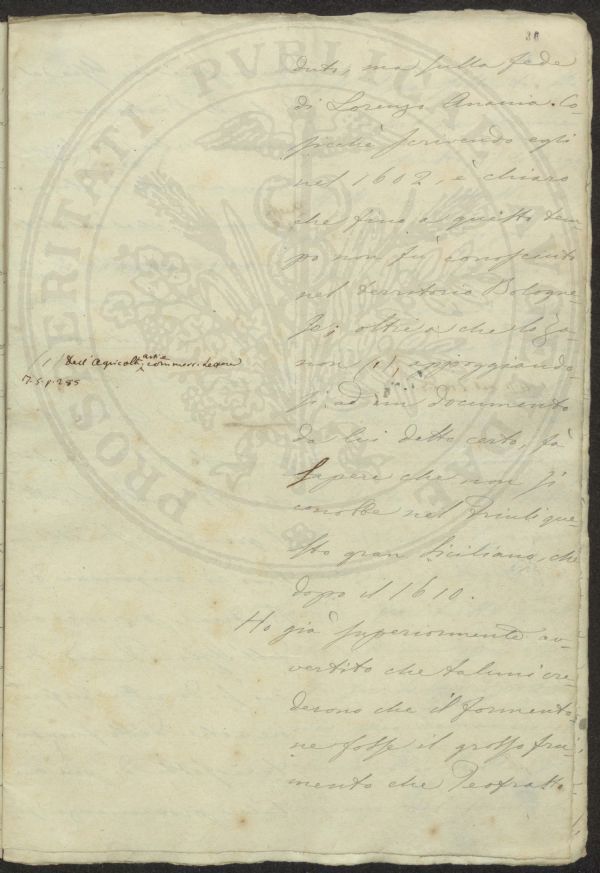 38
duti, ma sulla fede
di Lorenzo Anania. Co-
sicchè scrivendo egli
nel 1602, è chiaro
che fino a questo tem-
po non fù conosciuto
nel territorio Bologne-
se; oltre a che lo Za-
non (1), appoggiando-
si ad un documento
da lui detto certo, fà
sapere che non si
conobbe nel Friuli que-
sto gran Siciliano, che
dopo il 1610.
Ho già superiormente av-
vertito che taluni cre-
derono che il formento-
ne fosse il grosso fru-
mento che Teofrasto
(1) Dell'Agricolt. arti e commerci
T. 5. p. 285
PROSPERITATI PUBLICAE AUGENDAE